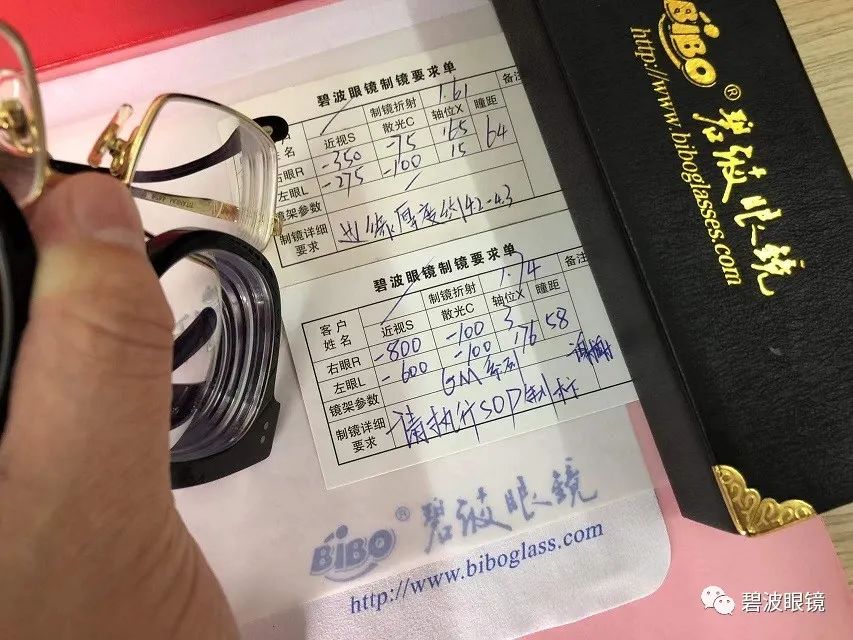 碧波眼镜制镜要求单
制镜折射 1.61 备注
名 近视S 散光C 轴位X 瞳距
右眼R -350 -75 165 64
左眼L -275 -100 15
镜架参数
制镜详细要求 边缘厚度约4.2-4.3
碧波眼镜制镜要求单
客户姓名 制镜折射 1.74 备注
近视S 散光C 轴位X 瞳距
右眼R -800 -100 3 58
左眼L -600 -100 176
镜架参数 GM系列
制镜详细要求 请执行SOP制标
谢谢
BiBO® 碧波眼镜
http://www.biboglass.com
BiBO® 碧波眼镜
http://www.biboglasses.com
TITANIUM
碧波眼镜